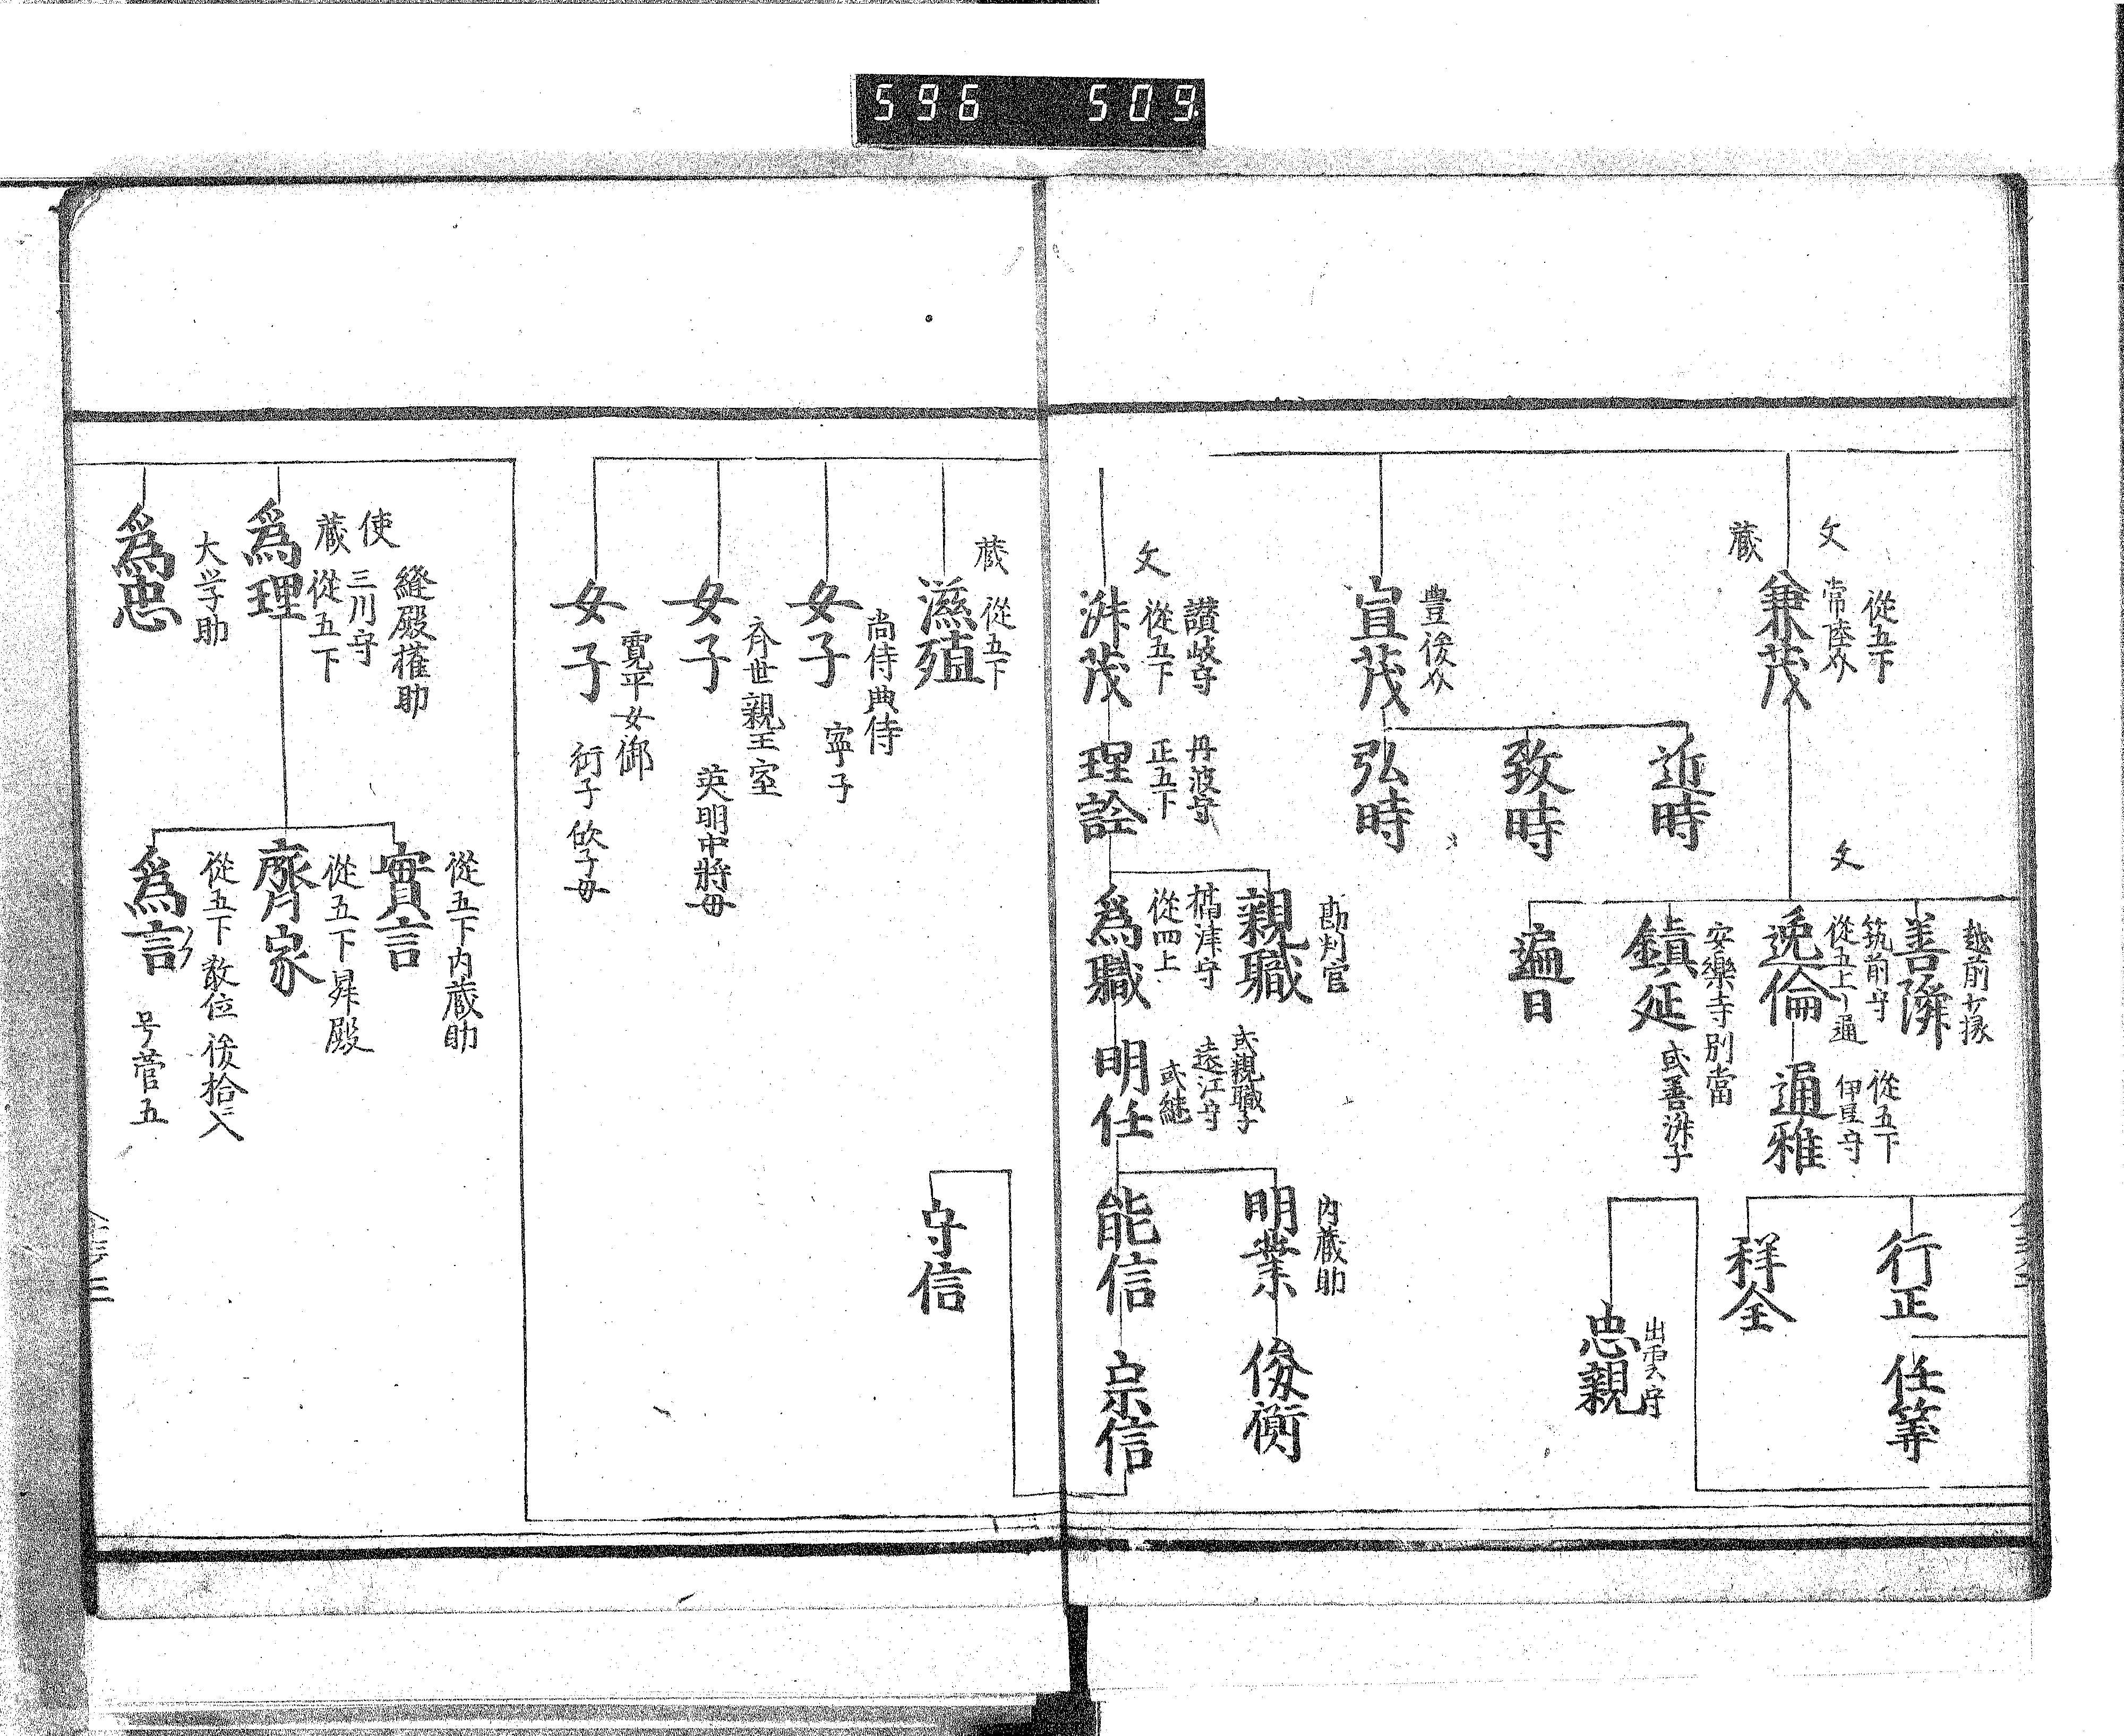 596 509
従五下
文
常陸介
蔵
兼茂
文
越前少掾
善隣
筑前守
従五上
逸倫
従五下
伊星守
通雅
安樂寺別當
或善渉子
鎮延
遍日
行正
任等
祥全
出雲守
忠親
豊後介
宣茂
近時
致時
弘時
文
讃岐守
従五下
渉茂
丹波守
正五下
理詮
勘判官
親職
攝津守
従四上
為職
或親職子
遠江守
或継
明任
内蔵助
明業
俊衡
能信
宗信
守信
蔵
従五下
滋殖
尚侍典侍
寧子
女子
斉世親王室
英明中将母
女子
寛平女御
衍子
欣子母
女子
縫殿権助
使
三川守
蔵
従五下
為理
従五下内蔵助
實言
従五下昇殿
齊家
従五下散位
後拾入
号菅五
為言
大学助
為忠